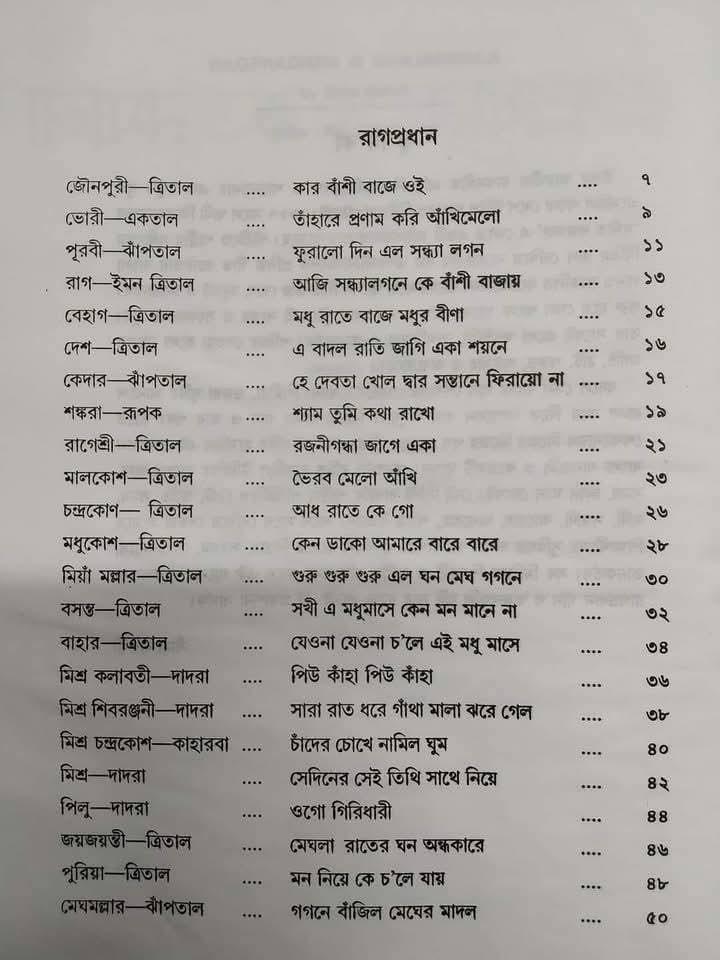 রাগপ্রধান
জৌনপুরী—ত্রিতাল .... কার বাঁশী বাজে ওই .... ৭
ভোরী—একতাল .... তাঁহারে প্রণাম করি আঁখিমেলো .... ৯
পূরবী—ঝাঁপতাল .... ফুরালো দিন এল সন্ধ্যা লগন .... ১১
রাগ—ইমন ত্রিতাল .... আজি সন্ধ্যালগনে কে বাঁশী বাজায় .... ১৩
বেহাগ—ত্রিতাল .... মধু রাতে বাজে মধুর বীণা .... ১৫
দেশ—ত্রিতাল .... এ বাদল রাতি জাগি একা শয়নে .... ১৬
কেদার—ঝাঁপতাল .... হে দেবতা খোল দ্বার সন্তানে ফিরায়ো না .... ১৭
শঙ্করা—রূপক .... শ্যাম তুমি কথা রাখো .... ১৯
রাগেশ্রী—ত্রিতাল .... রজনীগন্ধা জাগে একা .... ২১
মালকোশ—ত্রিতাল .... ভৈরব মেলো আঁখি .... ২৩
চন্দ্রকোশ— ত্রিতাল .... আধ রাতে কে গো .... ২৬
মধুকোশ—ত্রিতাল .... কেন ডাকো আমারে বারে বারে .... ২৮
মিয়াঁ মল্লার—ত্রিতাল .... গুরু গুরু গুরু এল ঘন মেঘ গগনে .... ৩০
বসন্ত—ত্রিতাল .... সখী এ মধুমাসে কেন মন মানে না .... ৩২
বাহার—ত্রিতাল .... যেওনা যেওনা চ'লে এই মধু মাসে .... ৩৪
মিশ্র কলাবতী—দাদরা .... পিউ কাঁহা পিউ কাঁহা .... ৩৬
মিশ্র শিবরঞ্জনী—দাদরা .... সারা রাত ধরে গাঁথা মালা ঝরে গেল .... ৩৮
মিশ্র চন্দ্রকোশ—কাহারবা .... চাঁদের চোখে নামিল ঘুম .... ৪০
মিশ্র—দাদরা .... সেদিনের সেই তিথি সাথে নিয়ে .... ৪২
পিলু—দাদরা .... ওগো গিরিধারী .... ৪৪
জয়জয়ন্তী—ত্রিতাল .... মেঘলা রাতের ঘন অন্ধকারে .... ৪৬
পুরিয়া—ত্রিতাল .... মন নিয়ে কে চ'লে যায় .... ৪৮
মেঘমল্লার—ঝাঁপতাল .... গগনে বাঁজিল মেঘের মাদল .... ৫০